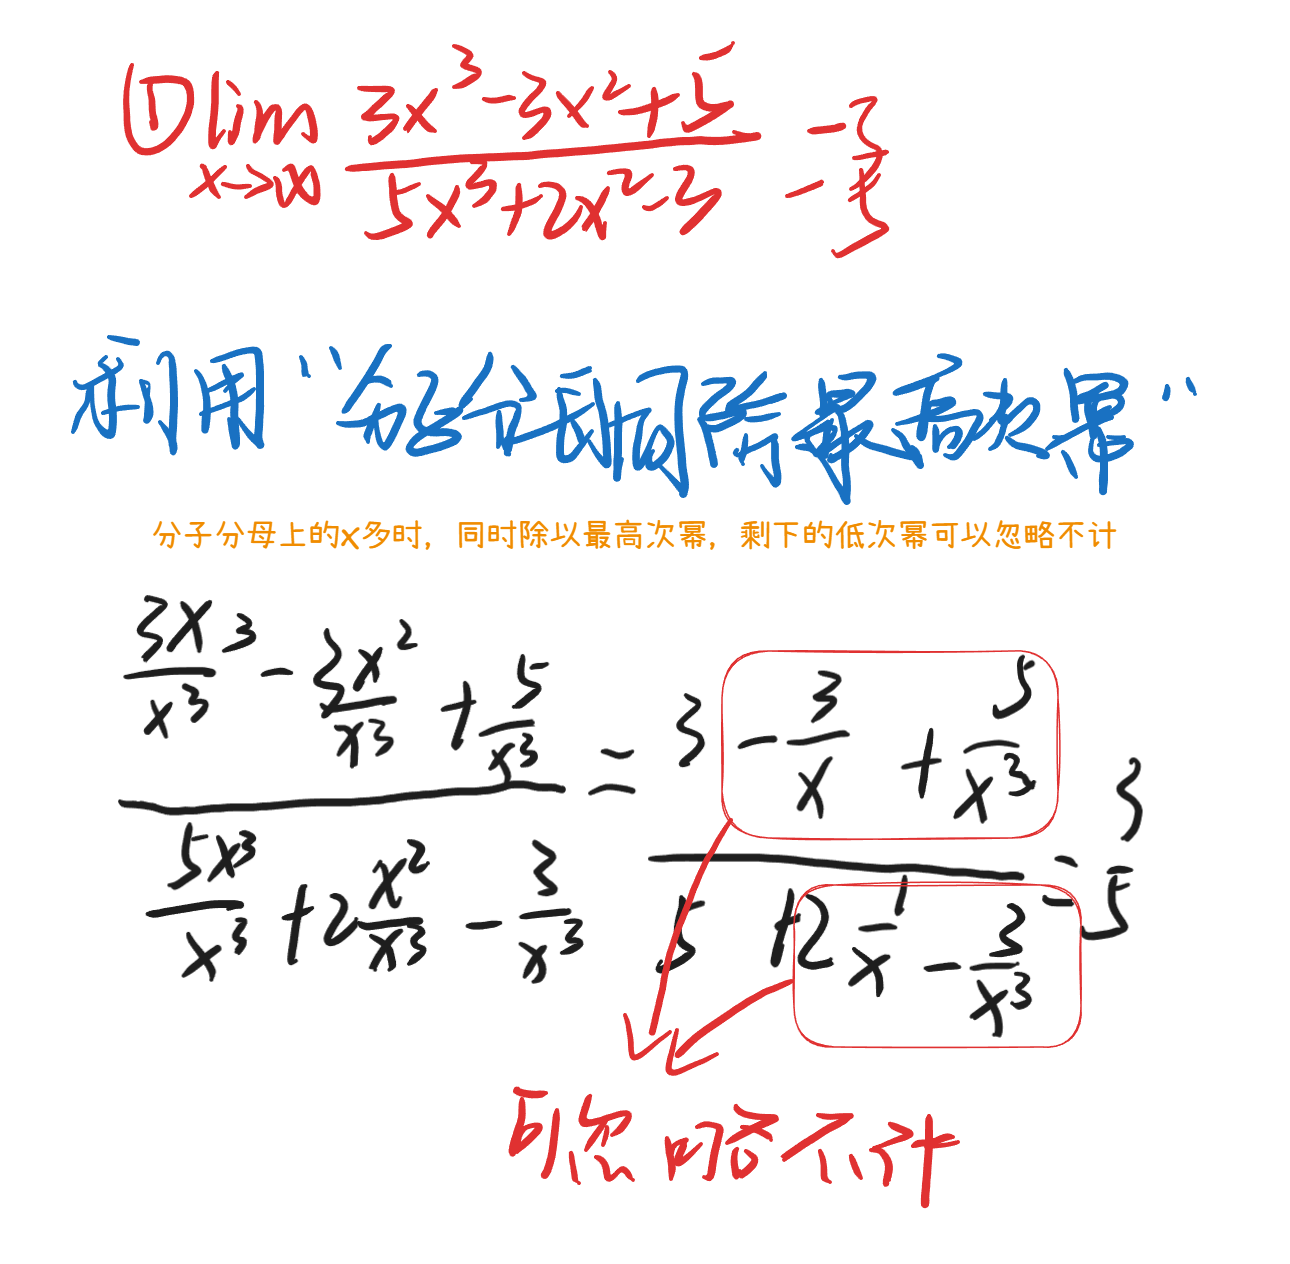 ① lim x→∞ (3x³-3x²+5)/(5x³+2x²-3) = 3/5
利用“分子分母同除最高次幂”
分子分母上的x多时，同时除以最高次幂，剩下的低次幂可以忽略不计
(3x³/x³ - 3x²/x³ + 5/x³)/(5x³/x³ + 2x²/x³ - 3/x³) = (3 - 3/x + 5/x³)/(5 + 2 1/x - 3/x³) = 3/5
可忽略不计